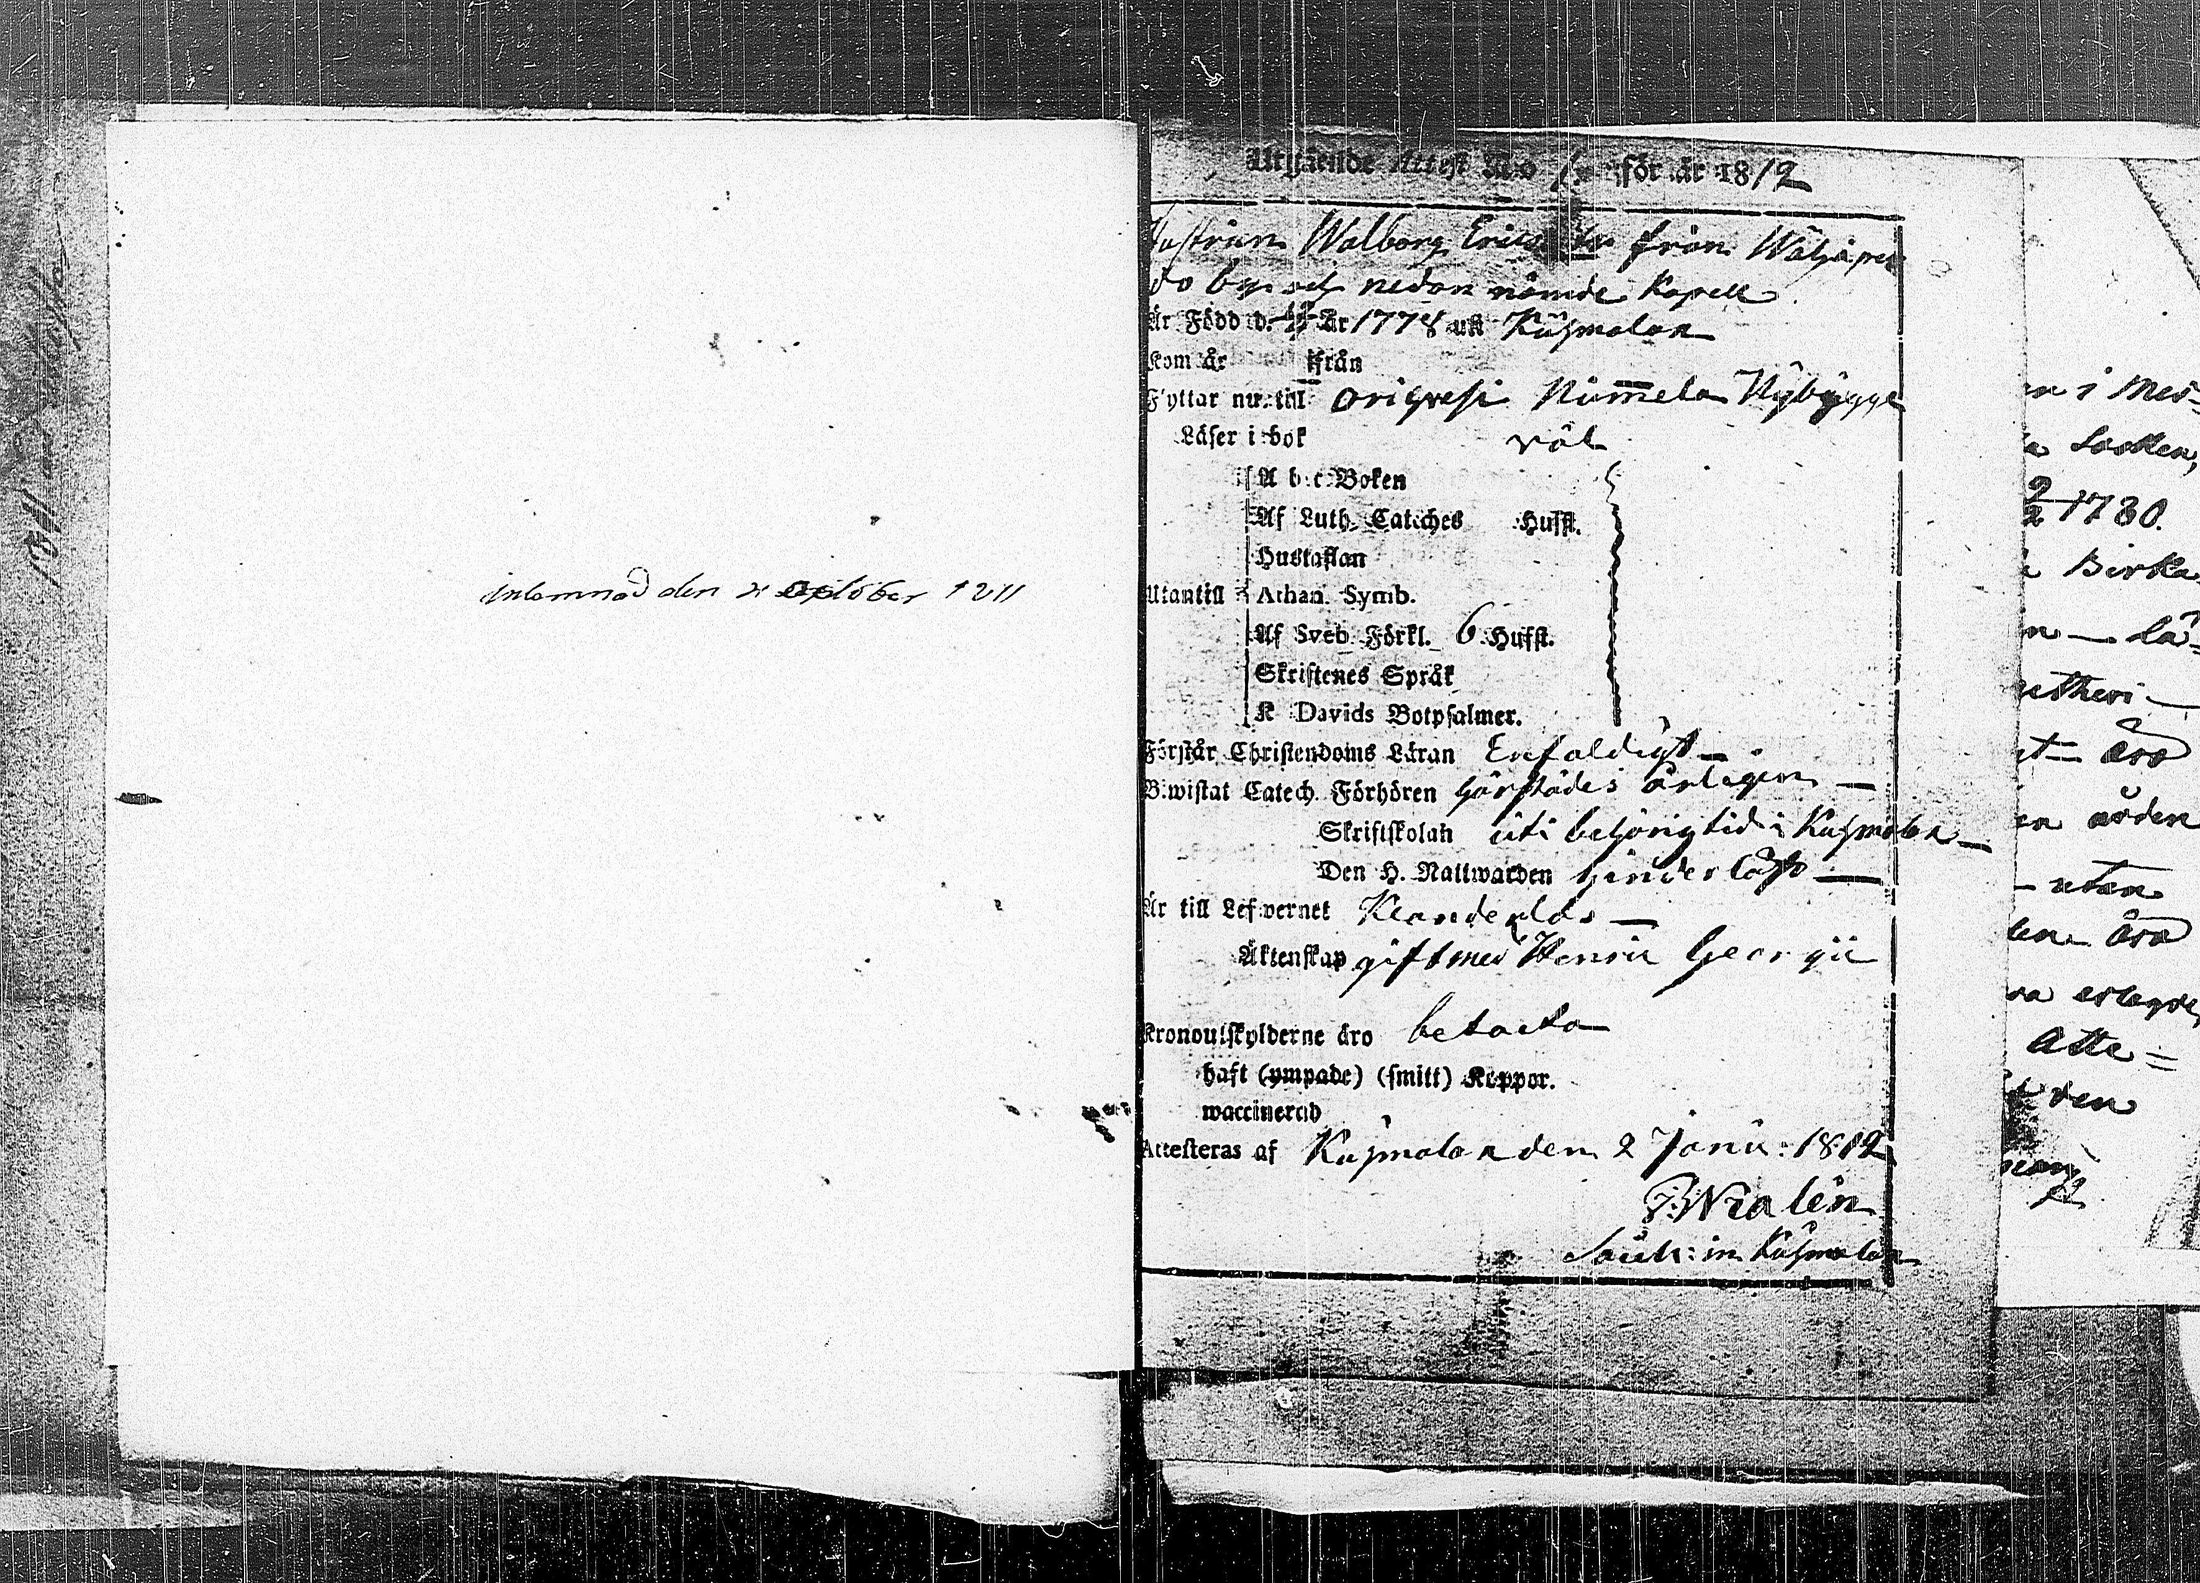 inlemnad den 2 October 1811
Utgående Attest N:o för år 1812
Hustrun Walborg Ericsdr från Wäljäperä
do by och nedannämde Kapell
Är Född d. år 1778 uti Kuhmalax
Kom år ifrån
Flyttar nu till Orivesi Nimmela Nybygge
Läser i bok väl
A b c Boken
Af Luth. Cateches Hufst.
Hustaflan
Utantill Athan. Symb.
Af Sveb. Förkl. 6 Hufst.
Skriftenes Språk
K Davids Botpsalmer.
Förstår Christendoms Läran Enfaldigt
Bewistat Catech. Förhören härstädes årligen
Skriftskolan uti behörig tid i Kuhmalax
Den H. Nattwarden hinderlöst
Är till Lefwernet Klanderlös
Äktenskap gift med Henric Georgii
Kronoutskylderne äro betalta
haft (ympade) (smitt) Koppor.
waccinerad
Attesteras af Kuhmalax den 2 Janu: 1812
Walen
Sack: in Kuhmalax
en i Mes=
Socken,
1780.
Birka
n — Lä=
utheri
t äro
en orden
— utan
len äro
ra erlagde,
Atte=
den